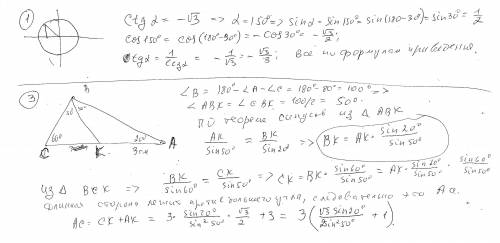 ① Ctg α = -√3 => α = 150° => sin α = sin 150° = sin(180-30°) = sin 30° = 1/2
cos 150° = cos(180°-30°) = -cos 30° = -√3/2;
tg α = 1/ctg α = -1/√3 = -√3/3; Все по формулам приведения.
③ B
50° 50°
60° 20°
C K 3 см A
∠B = 180° - ∠A - ∠C = 180° - 80° = 100° =>
∠ABK = ∠CBK = 100/2 = 50°.
По теореме синусов из △ ABK
AK/sin 50° = BK/sin 20° => BK = AK · sin 20°/sin 50°
из △ BCK => BK/sin 60° = CK/sin 50° => CK = BK · sin 60°/sin 50° = AK · sin 20°/sin 50° · sin 60°/sin 50°
сторона лежит против большего угла, следовательно это AC.
AC = CK + AK = 3 · sin 20°/sin² 50° · √3/2 + 3 = 3(√3 sin 20°/2 sin² 50° + 1).